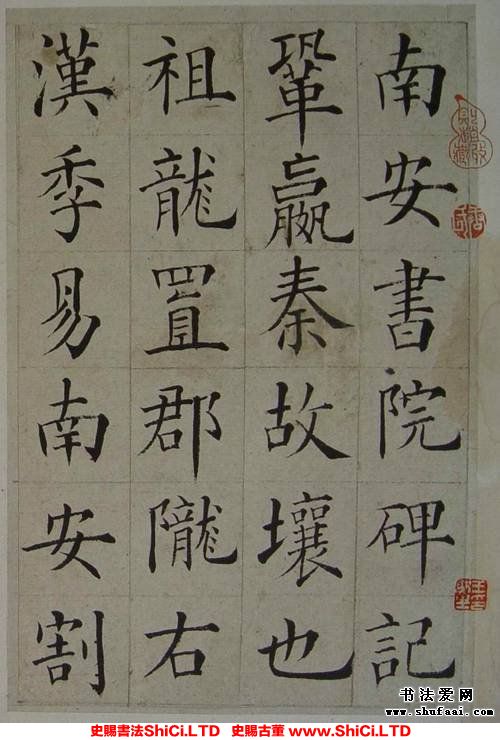 南安書院碑記
鞏嬴秦故壤也
祖龍置郡隴右
漢季易南安割
书法爱网
www.shufaai.com
史賜書法ShiCi.LTD 史賜古董 www.ShiCi.LTD